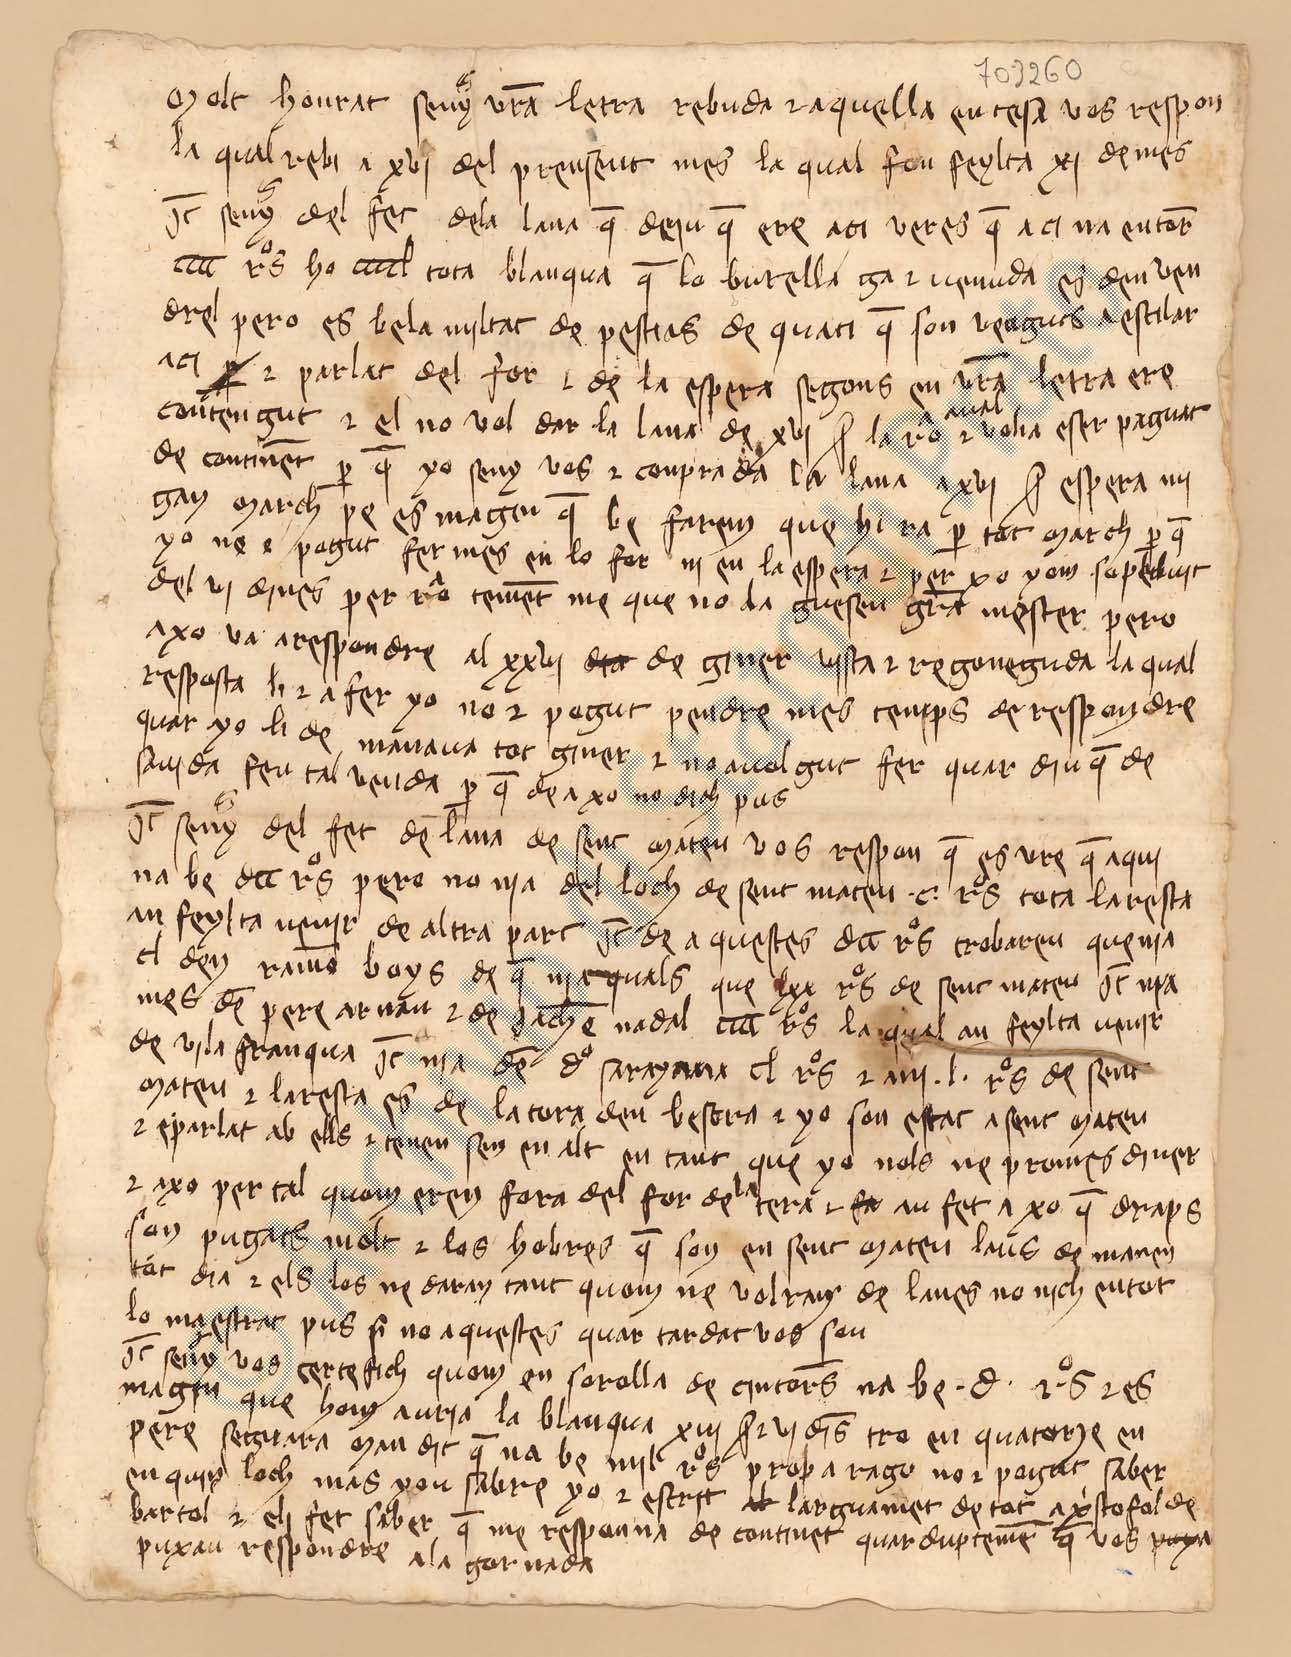 703260
Molt honrat senyor vra letra rebuda e aquella entesa vos respon
la qual rebi a xvi del prensent mes la qual fon feyta xi de mes
Jt senyor del fet dela lana q deiu q ere aci veres q aci na entorn
ccc ros ho cccl tota blanqua q lo burella ga e venuda es den ven
drel pero es bela miltat de pestias de quaci q son venguts a estilar
aci e parlat del for e de la espera segons en vra letra ere
contengut e el no vol dar la lana de xvi s la ro e volia eser paguat
aual
de continet per q yo seny vos e conprada la lana a xvi s espera mi
gan march pe es magin q be farem que hi ra per tot march per q
yo ne e pogut fer mes en lo for ni en la espera e per xo yom
del vi dines per ro tement me que no da guesen gran mester pero
axo va a respondre al xxvii de giner vista e regoneguda la qual
resposta li e a fer yo no e pogut pendre mes temps de respondre
quar yo li de manava tot giner e no a volgut fer quar diu q de
sauida feu tal venda per q de axo no dich pus
Jt senyor del fet de lana de sent mateu vos respon q es vre q aqui
na be dcc ros pero no nia del loch de sent mateu .c. ros tota la resta
an feyta venir de altra part Jt de aquestes dcc ros trobareu que nia
cl den ramo boys de q nia quals que lxx ros de sent mateu Jt nia
mes de pere arnau e de jachme nadal ccc ros la qual an feyta venir
de vila franqua Jt nia de do sarayana cl ros e ani .l. ros de sent
mateu e la resta es de la tora den bestra e yo son estat a sent mateu
e e parlat ab ells e tenen sen en alt en tant que yo nols ne promes diner
e axo per tal quom eren fora del for de la tera e an fet axo q draps
son pugats molt e los hobres q son en sent mateu laus de manen
tot dia e els los ne daran tant quom ne volran de lanes no nich en tot
lo maestrat pus si no aquestes quar tardat vos son
Jt senyor vos certefich quom en sorolla de cintorres na be .d. ros e es
magin que hom auria la blanqua xiii s e vi dis tro en quatorze en
pere seguara man dit q na be mil ros prop a rago no e pogut saber
en quin loch mas you sabre yo e escrit larguamet de tot a xstofol de
bartol e eli fet saber q me responna de continet quar duptem q vos
puxau respondre ala gornada